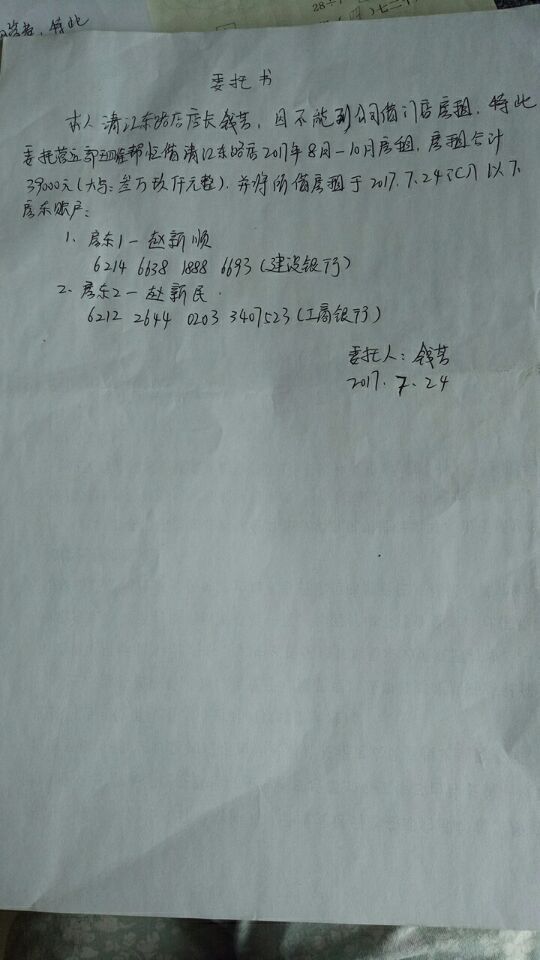 28÷7
七二十
特此
委托书
本人清江东路店店长钱芸，因不能到公司借门店房租，特此
委托营运部 帮忙借清江东路店2017年8月一10月房租，房租合计
39000元（大写：叁万玖仟元整），并将所借房租于2017.7.24汇入以下
房东账户：
1、房东1一赵新顺
6214 6638 1888 6693（建设银行）
2、房东2一赵新民
6212 2644 0203 3407523（工商银行）
委托人：钱芸
2017.7.24